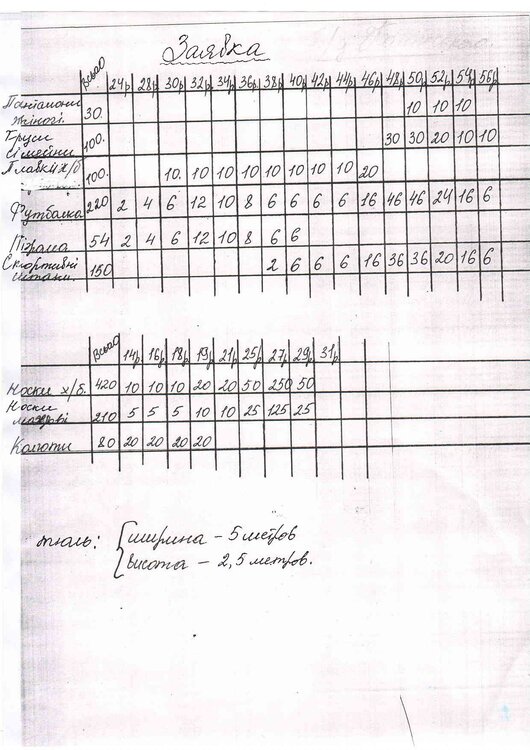 Заявка
Всього 24р 28р 30р 32р 34р 36р 38р 40р 42р 44р 46р 48р 50р 52р 54р 56р
Панталони
жіночі. 30. 10 10 10
Труси
сімейни 100. 30 30 20 10 10
Плавки х/б 100. 10. 10 10 10 10 10 10 10 20
Футболка 220 2 4 6 12 10 8 6 6 6 6 16 46 46 24 16 6
Піжама 54 2 4 6 12 10 8 6 6
Спортивні
штани. 150 2 6 6 6 16 36 36 20 16 6
Всього 14р. 16р 18р 19р 21р 25р 27р 29р 31р
Носки х/б. 420 10 10 10 20 20 50 250 50
Носки
махрові 210 5 5 5 10 10 25 125 25
Колготи 80 20 20 20 20
тюль: ширина – 5 метров
высота – 2,5 метров.